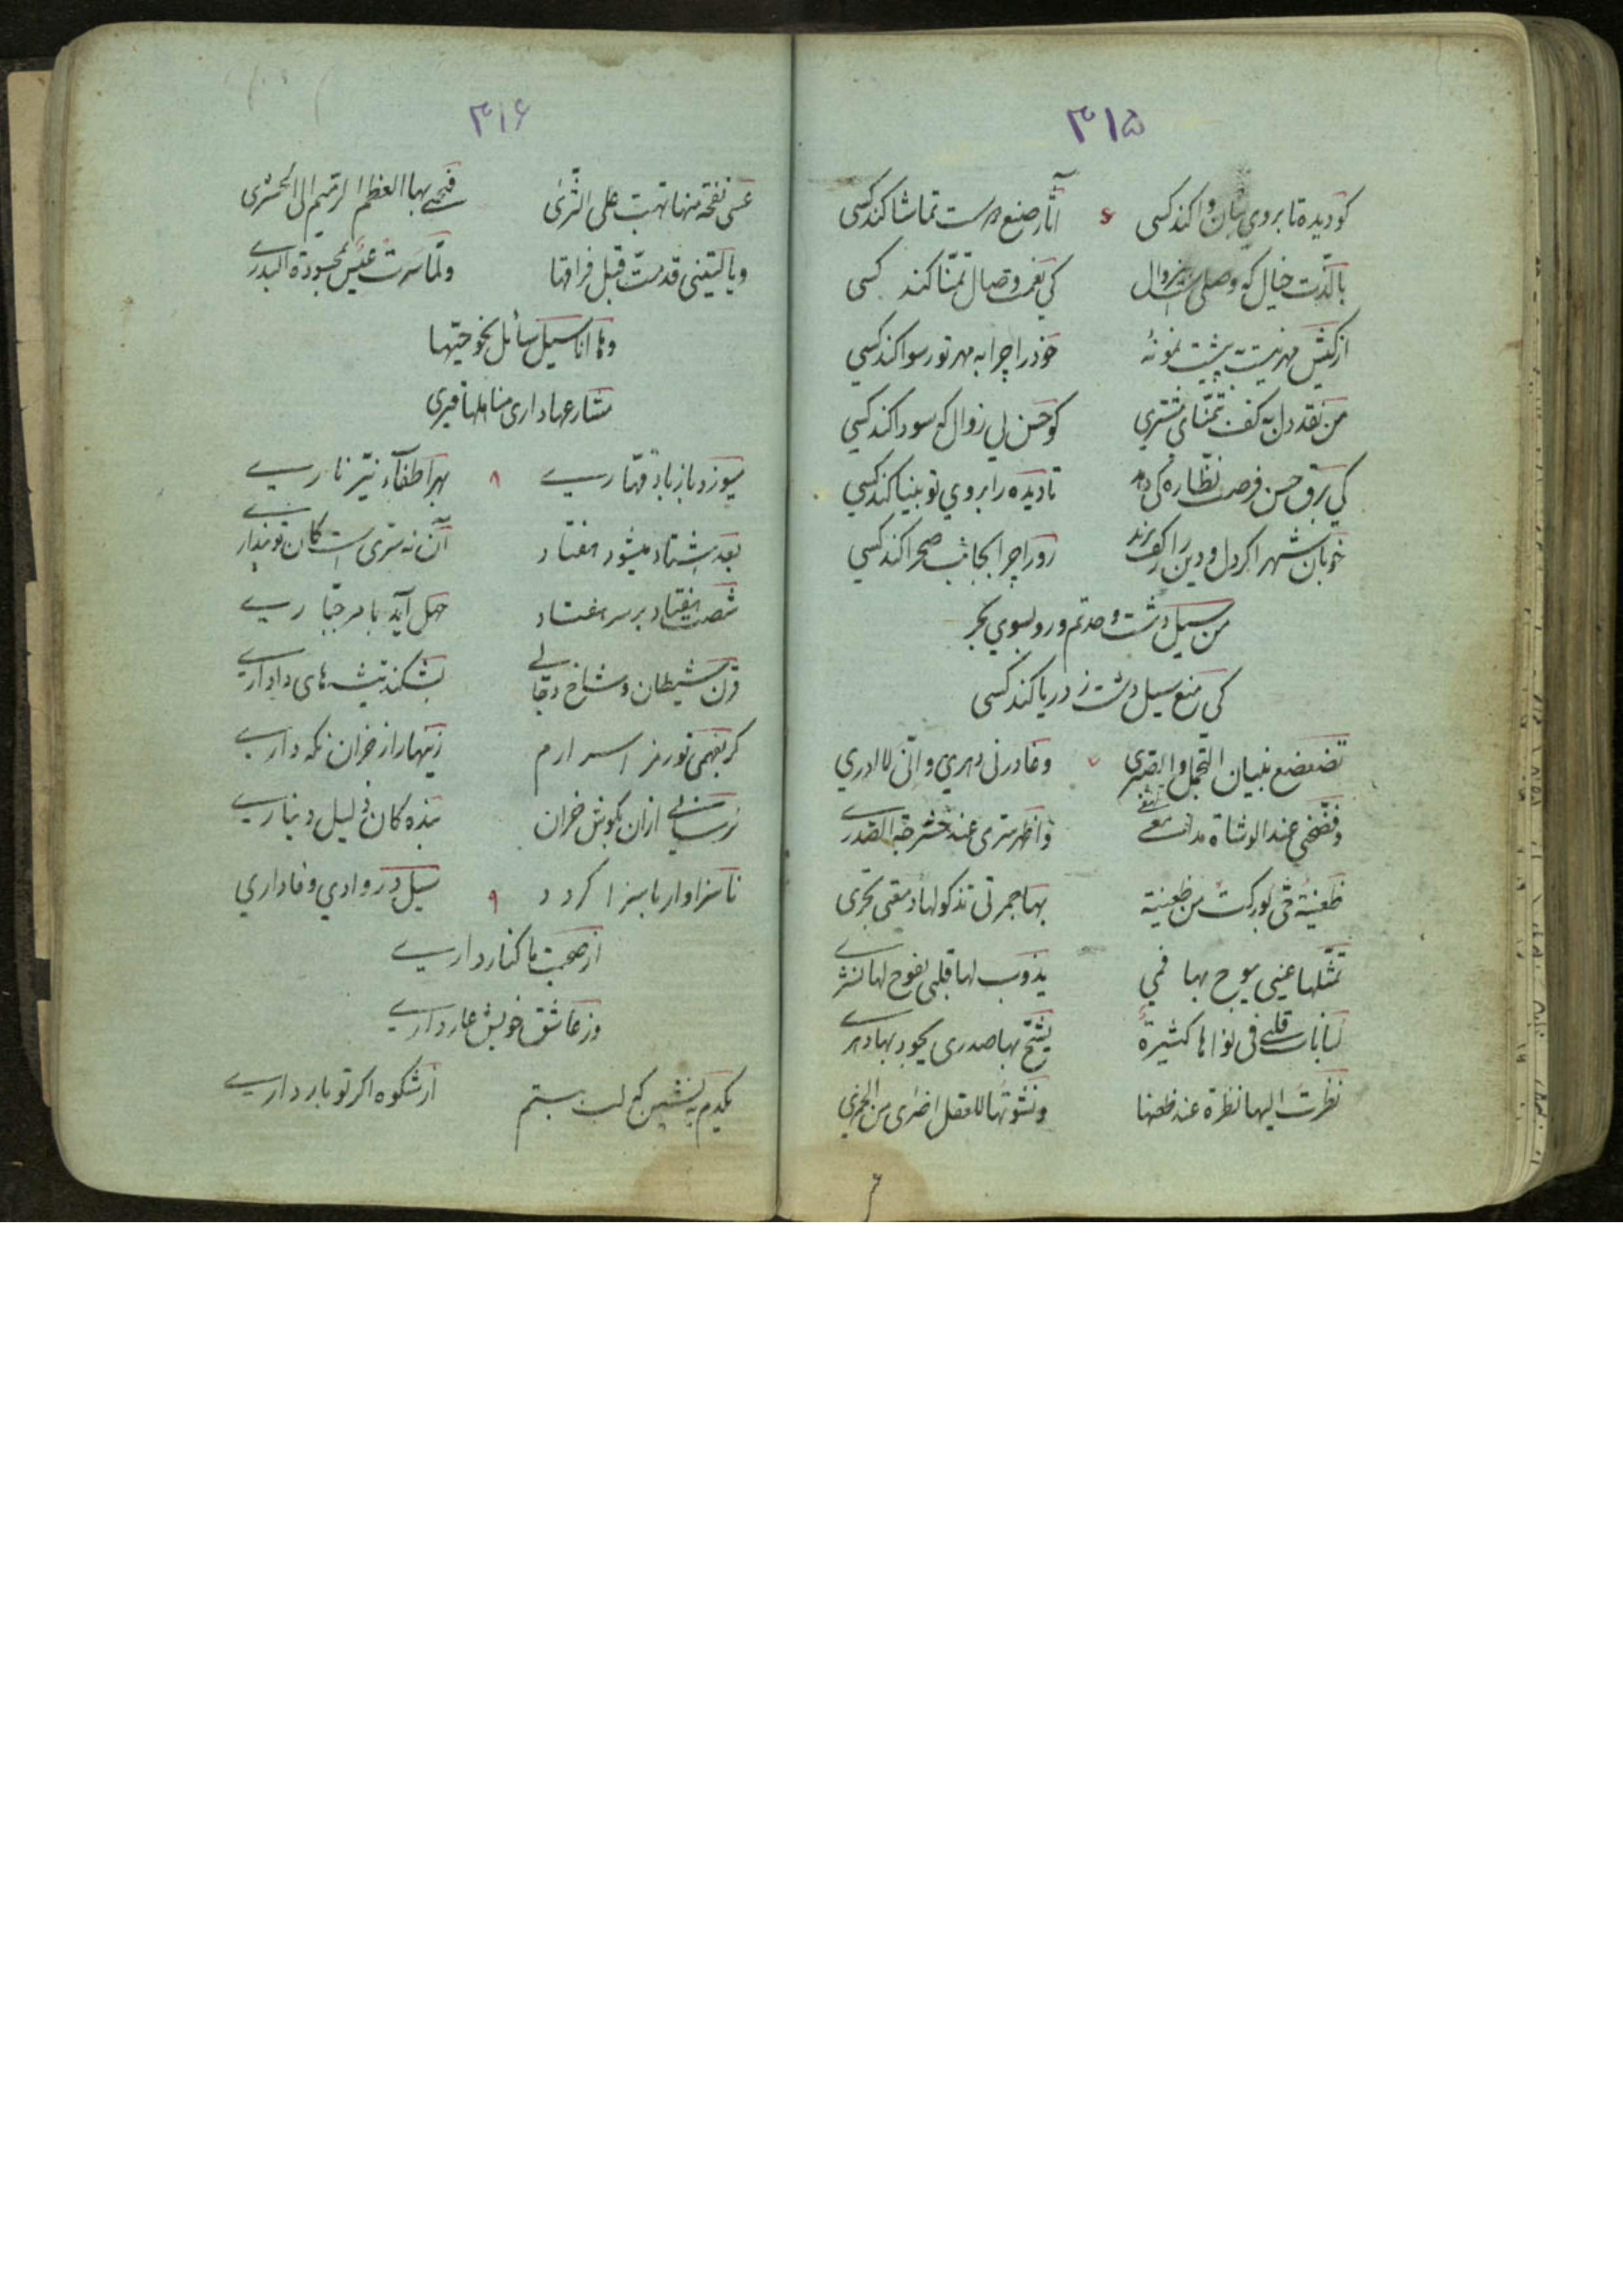 ۳۱۵
کو دیده تا بروی بتان وا کند کسی
آثار صنع است تماشا کند کسی
با لذت خیال که وصلی است بیزوال
کی نعمت وصال تمنا کند کسی
از کیش مهر نیست به پیشت نمونهٔ
خود را چرا به مهر تو رسوا کند کسی
من نقد دل به کف به تمنای مشتری
کو حسن بی زوال که سودا کند کسی
کی برق حسن فرصت نظاره کی دهد
تا دیده را بروی تو بینا کند کسی
خوبان شهر اگر دل و دین را گرو برند
رو را چرا بجانب صحرا کند کسی
من سیل دشت وحدتم و رو بسوی بحر
کی منع سیل دشت ز دریا کند کسی
تضعضع بنیان التجمل والصبری
وغادرنی دهری وانی لا ادری
وفضحنی عند الوشاة مدامعی
واظهر سری عند حشرجة الصدری
ظعینة
بها جمرتی تذکو لها دمعتی تجری
تمثلها عینی یبوح بها فمی
یذوب لها قلبی یفوح لها نشری
لبانات قلبی فی نواها کثیرة
یشح بها صدری یجود بها دهری
نظرت الیها نظرة عند ظعنها
ونشوتها للعقل اضری من الخمری
۳۱۶
عسی نفحة منها تهب علی الثری
فیحیی بها العظم الرمیم الی الحشری
ویا لیتنی قدمت قبل فراقها
ولما سرت عیس بحسودة البدری
وها انا سیل سائل نحو حیها
میوزد باز باد قهاری
بهر اطفآء نیر ناری
بعد هشتاد میشود هفتاد
آن نه سری است کان تو پنداری
شصت هفتاد بر سر هفتاد
چهل آید با مر جباری
قرن شیطان و شاخ دجالی
بشکند تیشه های داداری
گر بفهمی تو رمز اسرارم
زینهار از خران نگه داری
نرسانی از آن بگوش خران
بنده کان ذلیل دیناری
ناسزاوار با سزا گردد
سیل در وادی وفاداری
از صحبت ما کنار داری
وز عاشق خویش عار داری
یکدم بنشین که لب ببستم
از شکوه اگر تو بار داری